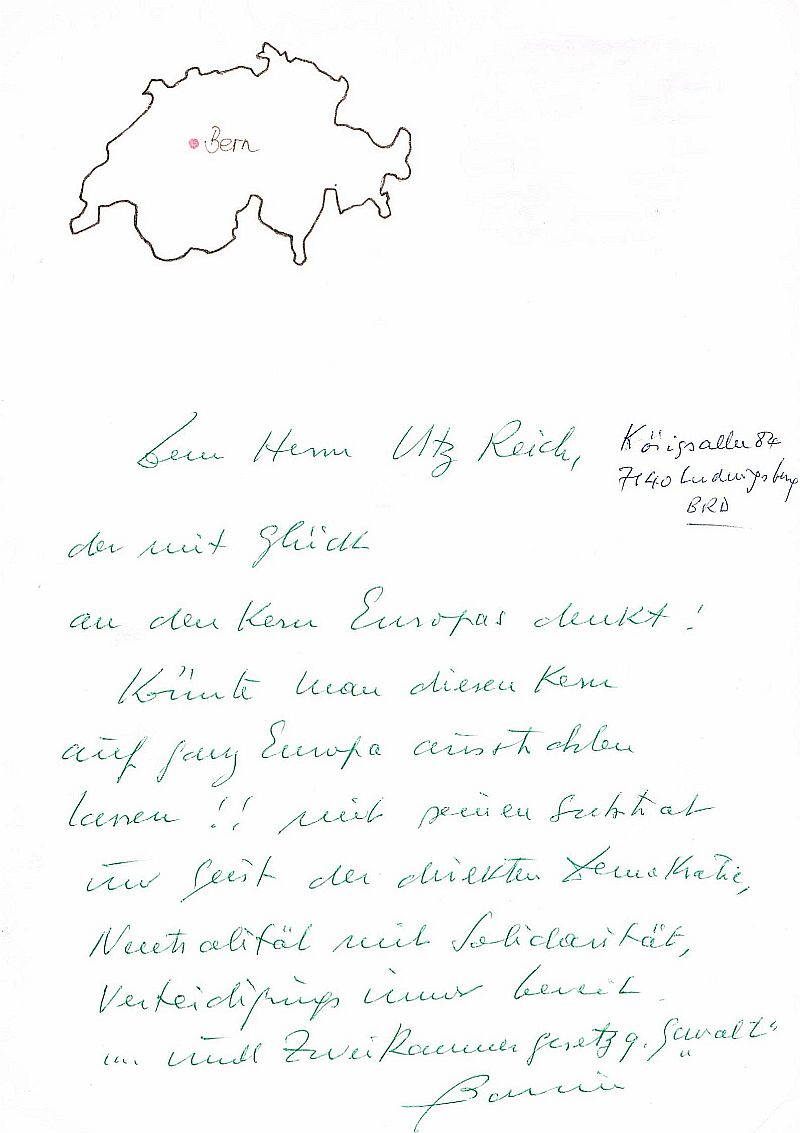 Bern
Dem Herrn Utz Reich,
Königsallee 84
7140 Ludwigsburg
BRD
der mit Glück
an den Kern Europas denkt!
Könnte man diesen Kern
auf ganz Europa ausstrahlen
lassen!! mit seinen
Geist der direkten Demokratie,
Neutralität mit Solidarität,
Verteidigungs immer bereit
.... und Zweikammergesetzg. "Gewalt"